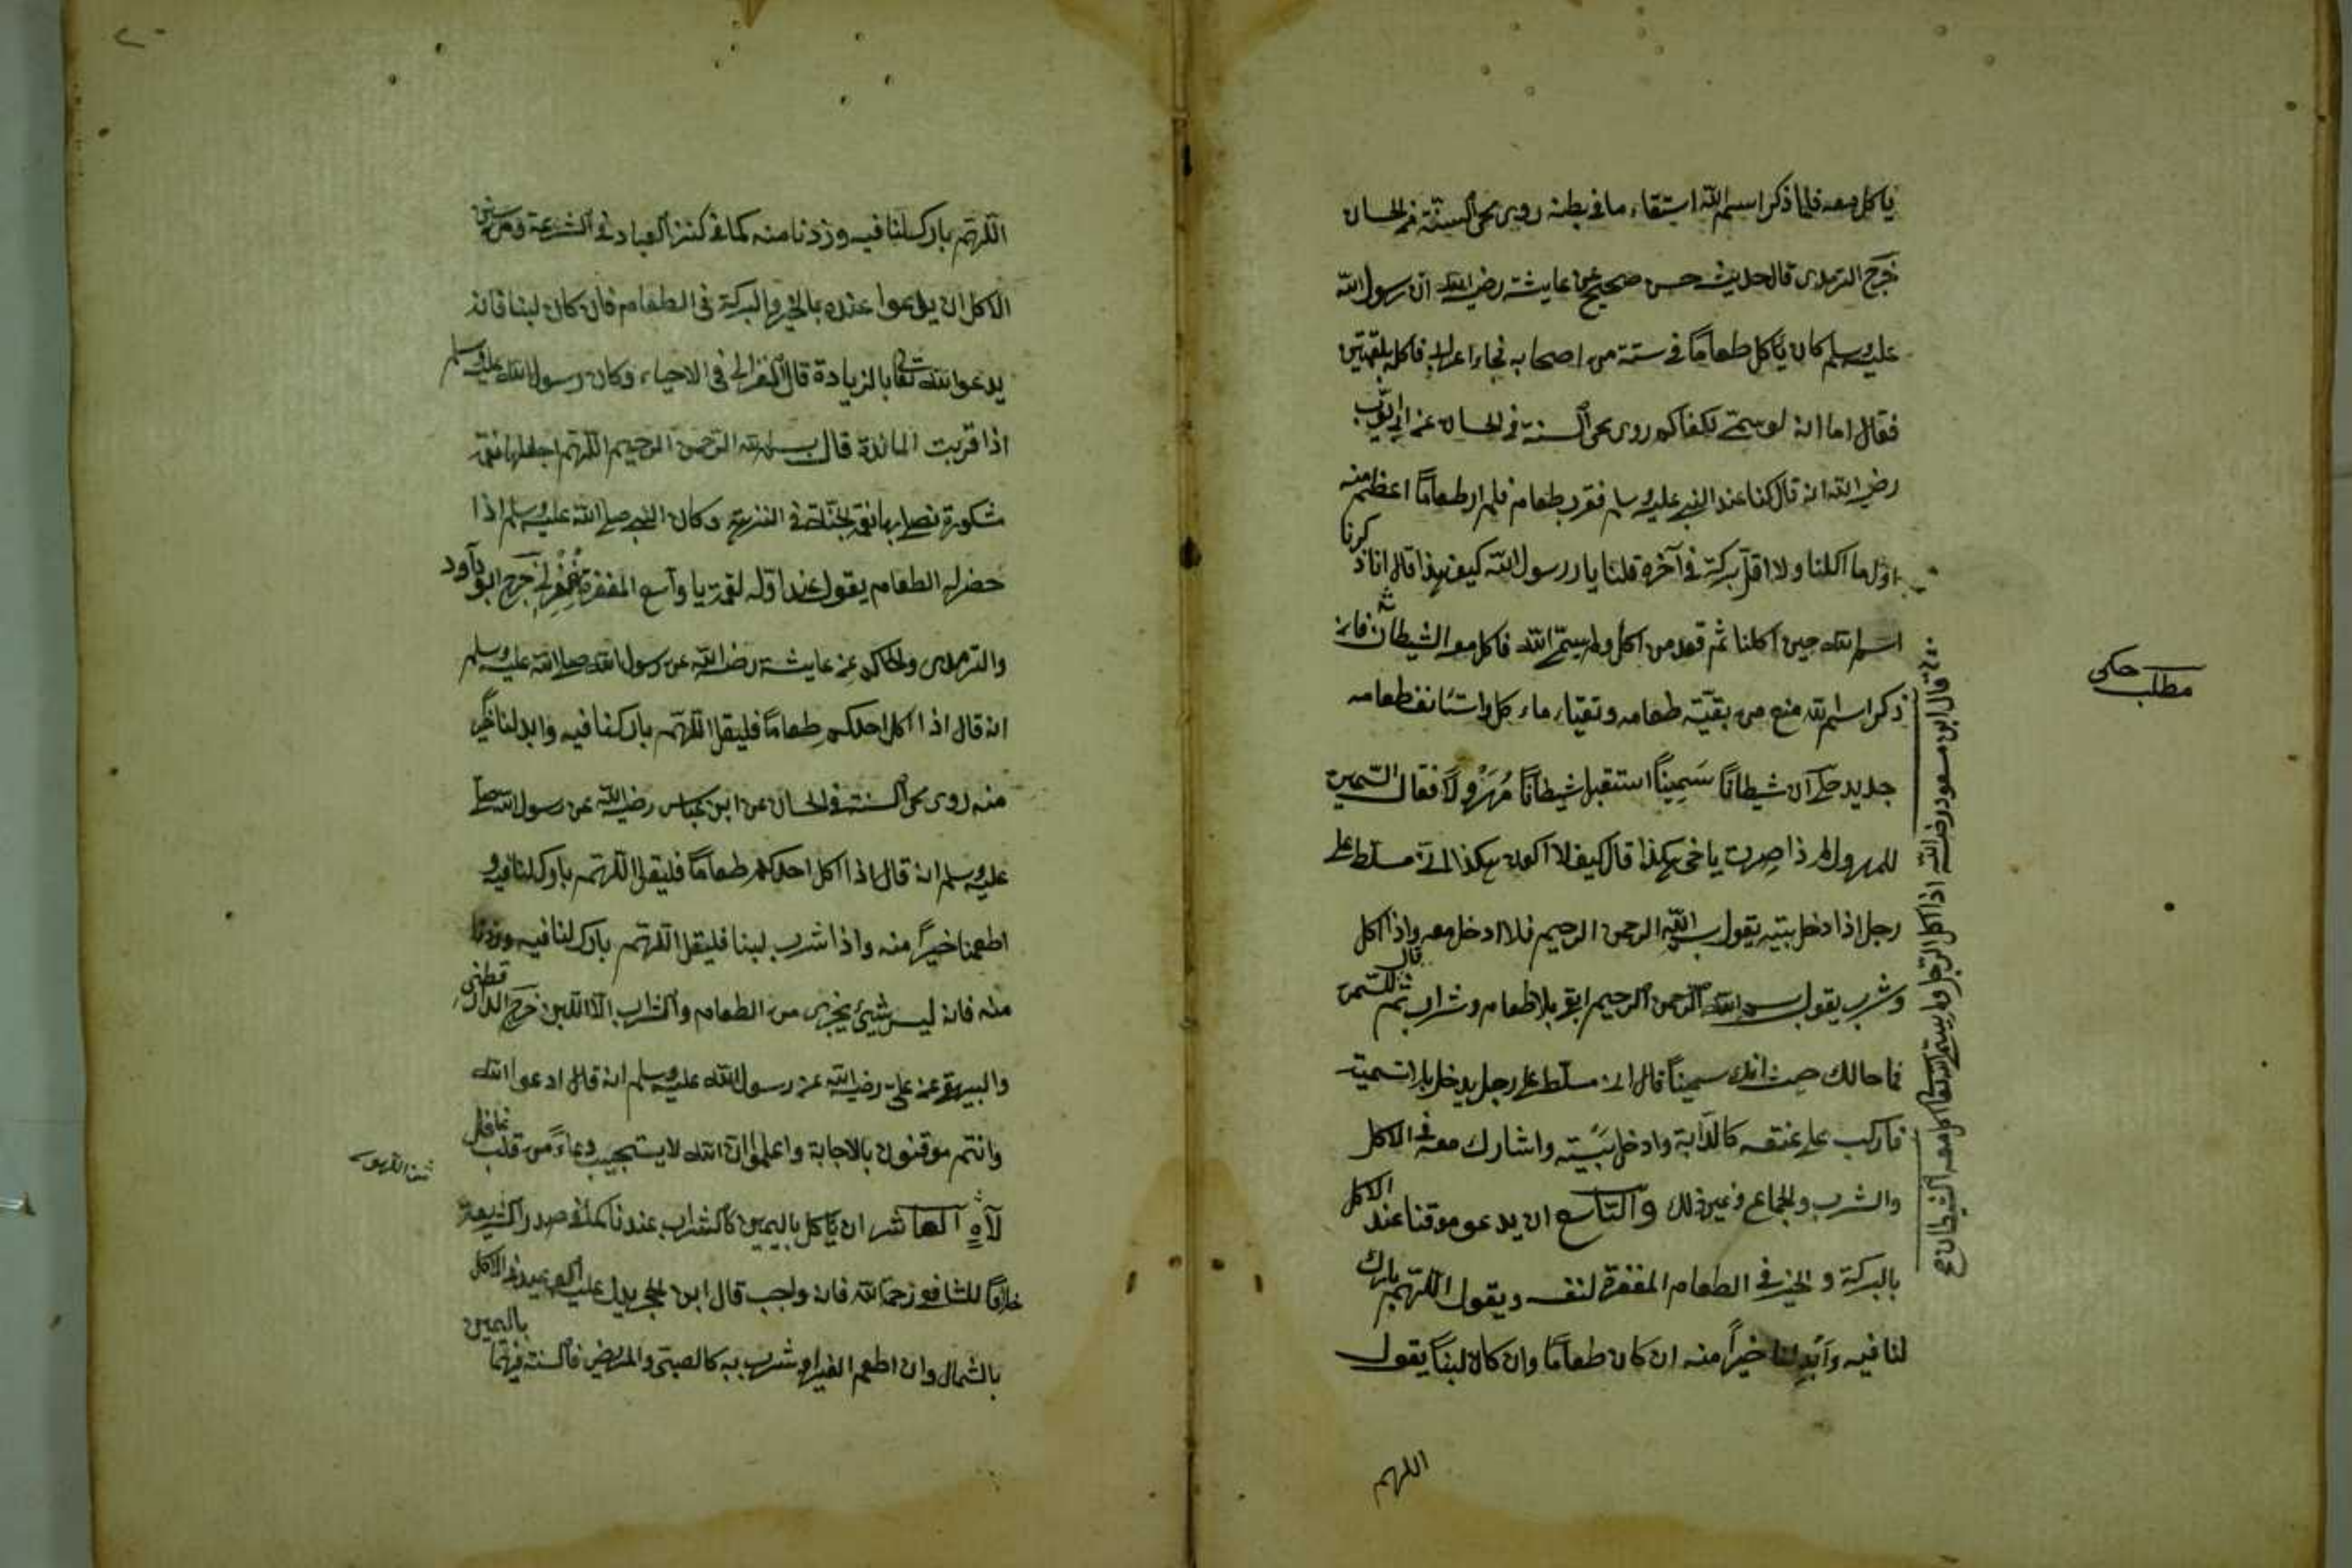 ياكل معه فلما ذكر اسم الله استقاء ما في بطنه روى محي السنة في الحسان
خرج الترمذى قال حديث حسن صحيح عن عايشة رضي الله ان رسول الله
عليه وسلم كان ياكل طعاماً في ستة من اصحابه فجاء اعرابي فاكله بلقمتين
فقال اما انه لو سمى لكفاكم روى محي السنة في الحسان عن ابي ايوب
رضي الله انه قال كنا عند النبي عليه وسلم فقرب طعام فلم ار طعاماً اعظم منه
اول ما اكلنا ولا اقل بركة في آخره قلنا يا رسول الله كيف هذا قال انا ذكرنا
اسم الله حين اكلنا ثم قعد من اكل ولم يسم الله فاكل معه الشيطان فان
ذكر اسم الله منع من بقية طعامه وتقياء ماء كل واستانف طعامه
جديد حكى ان شيطاناً سميناً استقبل شيطاناً مهزولاً فقال السمين
للمهزول لم ذا صرت يا خى هكذا قال كيف لا اكون هكذا انى مسلط على
رجل اذا دخل بيته يقول بسم الله الرحمن الرحيم فلا ادخل معه واذا اكل
وشرب يقول بسم الله الرحمن الرحيم ابقى بلا طعام وشراب ثم قال للسمين
فما حالك حيث انك سميناً قال انى مسلط على رجل يدخل بلا تسمية
فاركب على عنقه كالدابة وادخل بيته واشارك معه في الاكل
والشرب والجماع وغير ذلك والتاسع ان يدعو موقنا عند الاكل
بالبركة والخير في الطعام المغفرة لنفسه ويقول اللهم بارك
لنا فيه وابدلنا خيراً منه ان كان طعاماً وان كان لبناً يقول
اللهم
قال ابن مسعود رضي الله اذا اكل الرجل ولم يسم الله تعا اكل معه الشيطان
مطلب حكى
اللهم بارك لنا فيه وزدنا منه كما في كنز العباد في الشرعة ومن سنن
الاكل ان يدعوا عنده بالخير والبركة في الطعام فان كان لبنا فانه
يدعوا الله تعا بالزيادة قال الغزالى في الاحياء وكان رسول الله عليه وسلم
اذا قربت المائدة قال بسم الله الرحمن الرحيم اللهم اجعلها نعمة
مشكورة نصل بها نعمة الجنة وكان النبي صلى الله عليه وسلم اذا
حضر له الطعام يقول عند اوله لقمة يا واسع المغفرة اغفرلى خرج ابو داود
والترمذى والحاكم عن عايشة رضي الله عن رسول الله صلى الله عليه وسلم
انه قال اذا اكل احدكم طعاماً فليقل اللهم بارك لنا فيه وابدلنا خيراً
منه روى محي السنة في الحسان عن ابن عباس رضي الله عن رسول الله صلى
عليه وسلم انه قال اذا اكل احدكم طعاماً فليقل اللهم بارك لنا فيه و
اطعمنا خيراً منه واذا شرب لبنا فليقل اللهم بارك لنا فيه وزدنا
منه فانه ليس شيئ يجزى من الطعام والشراب الا اللبن خرج الدار قطنى
والبيهقى عن على رضي الله عن رسول الله عليه وسلم انه قال ادعوا الله
وانتم موقنون بالاجابة واعلموا ان الله لا يستجيب دعاءً من قلب غافل
لاه العاشر ان ياكل باليمين كالشراب عندنا كما في صدر الشريعة
خلافاً للشافعى رحمه الله فانه واجب قال ابن
بالشمال وان اطعم الغير او شرب به كالصبى والمريض فالسنة فيهما باليمين